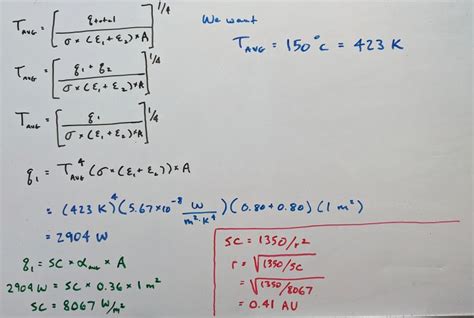 T_AVG = [ q_total / σ × (ε₁ + ε₂) × A ]^1/4
We want
T_AVG = 150°C = 423 K
T_AVG = [ q₁ + q₂ / σ × (ε₁ + ε₂) × A ]^1/4
T_AVG = [ q₁ / σ × (ε₁ + ε₂) × A ]^1/4
q₁ = T_AVG⁴ (σ × (ε₁ + ε₂)) × A
= (423 K)⁴ (5.67×10⁻⁸ W / m²·K⁴) (0.80 + 0.80) (1 m²)
= 2904 W
q₁ = SC × α_AVG × A
2904 W = SC × 0.36 × 1 m²
SC = 8067 W/m²
SC = 1350/r²
r = √1350/SC
= √1350/8067
= 0.41 AU